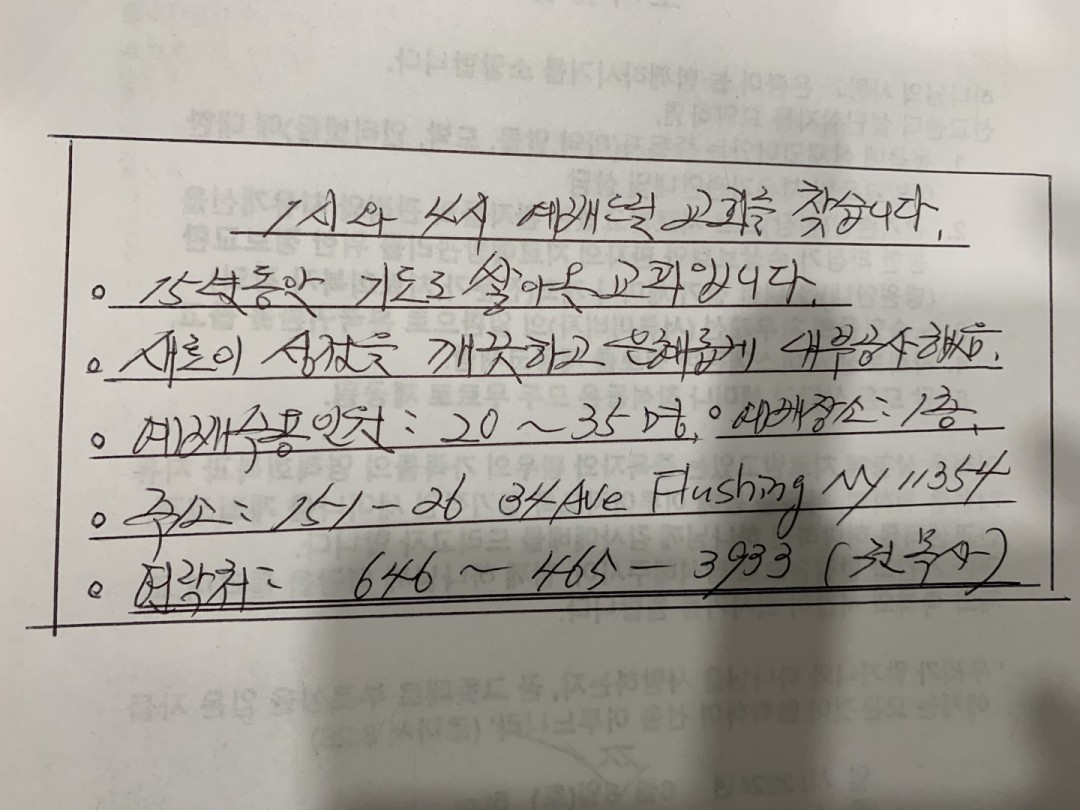 1시와 4시 예배드릴 교회를 찾습니다.
15년동안 기도로 쌓아온 교회입니다.
새로이 성전을 깨끗하고 은혜롭게 내부공사했음.
예배수용인원: 20 ~ 35명, 예배장소: 1층,
주소: 151-26 34 Ave Flushing NY 11354
연락처: 646 ~ 465 - 3933 (천목사)